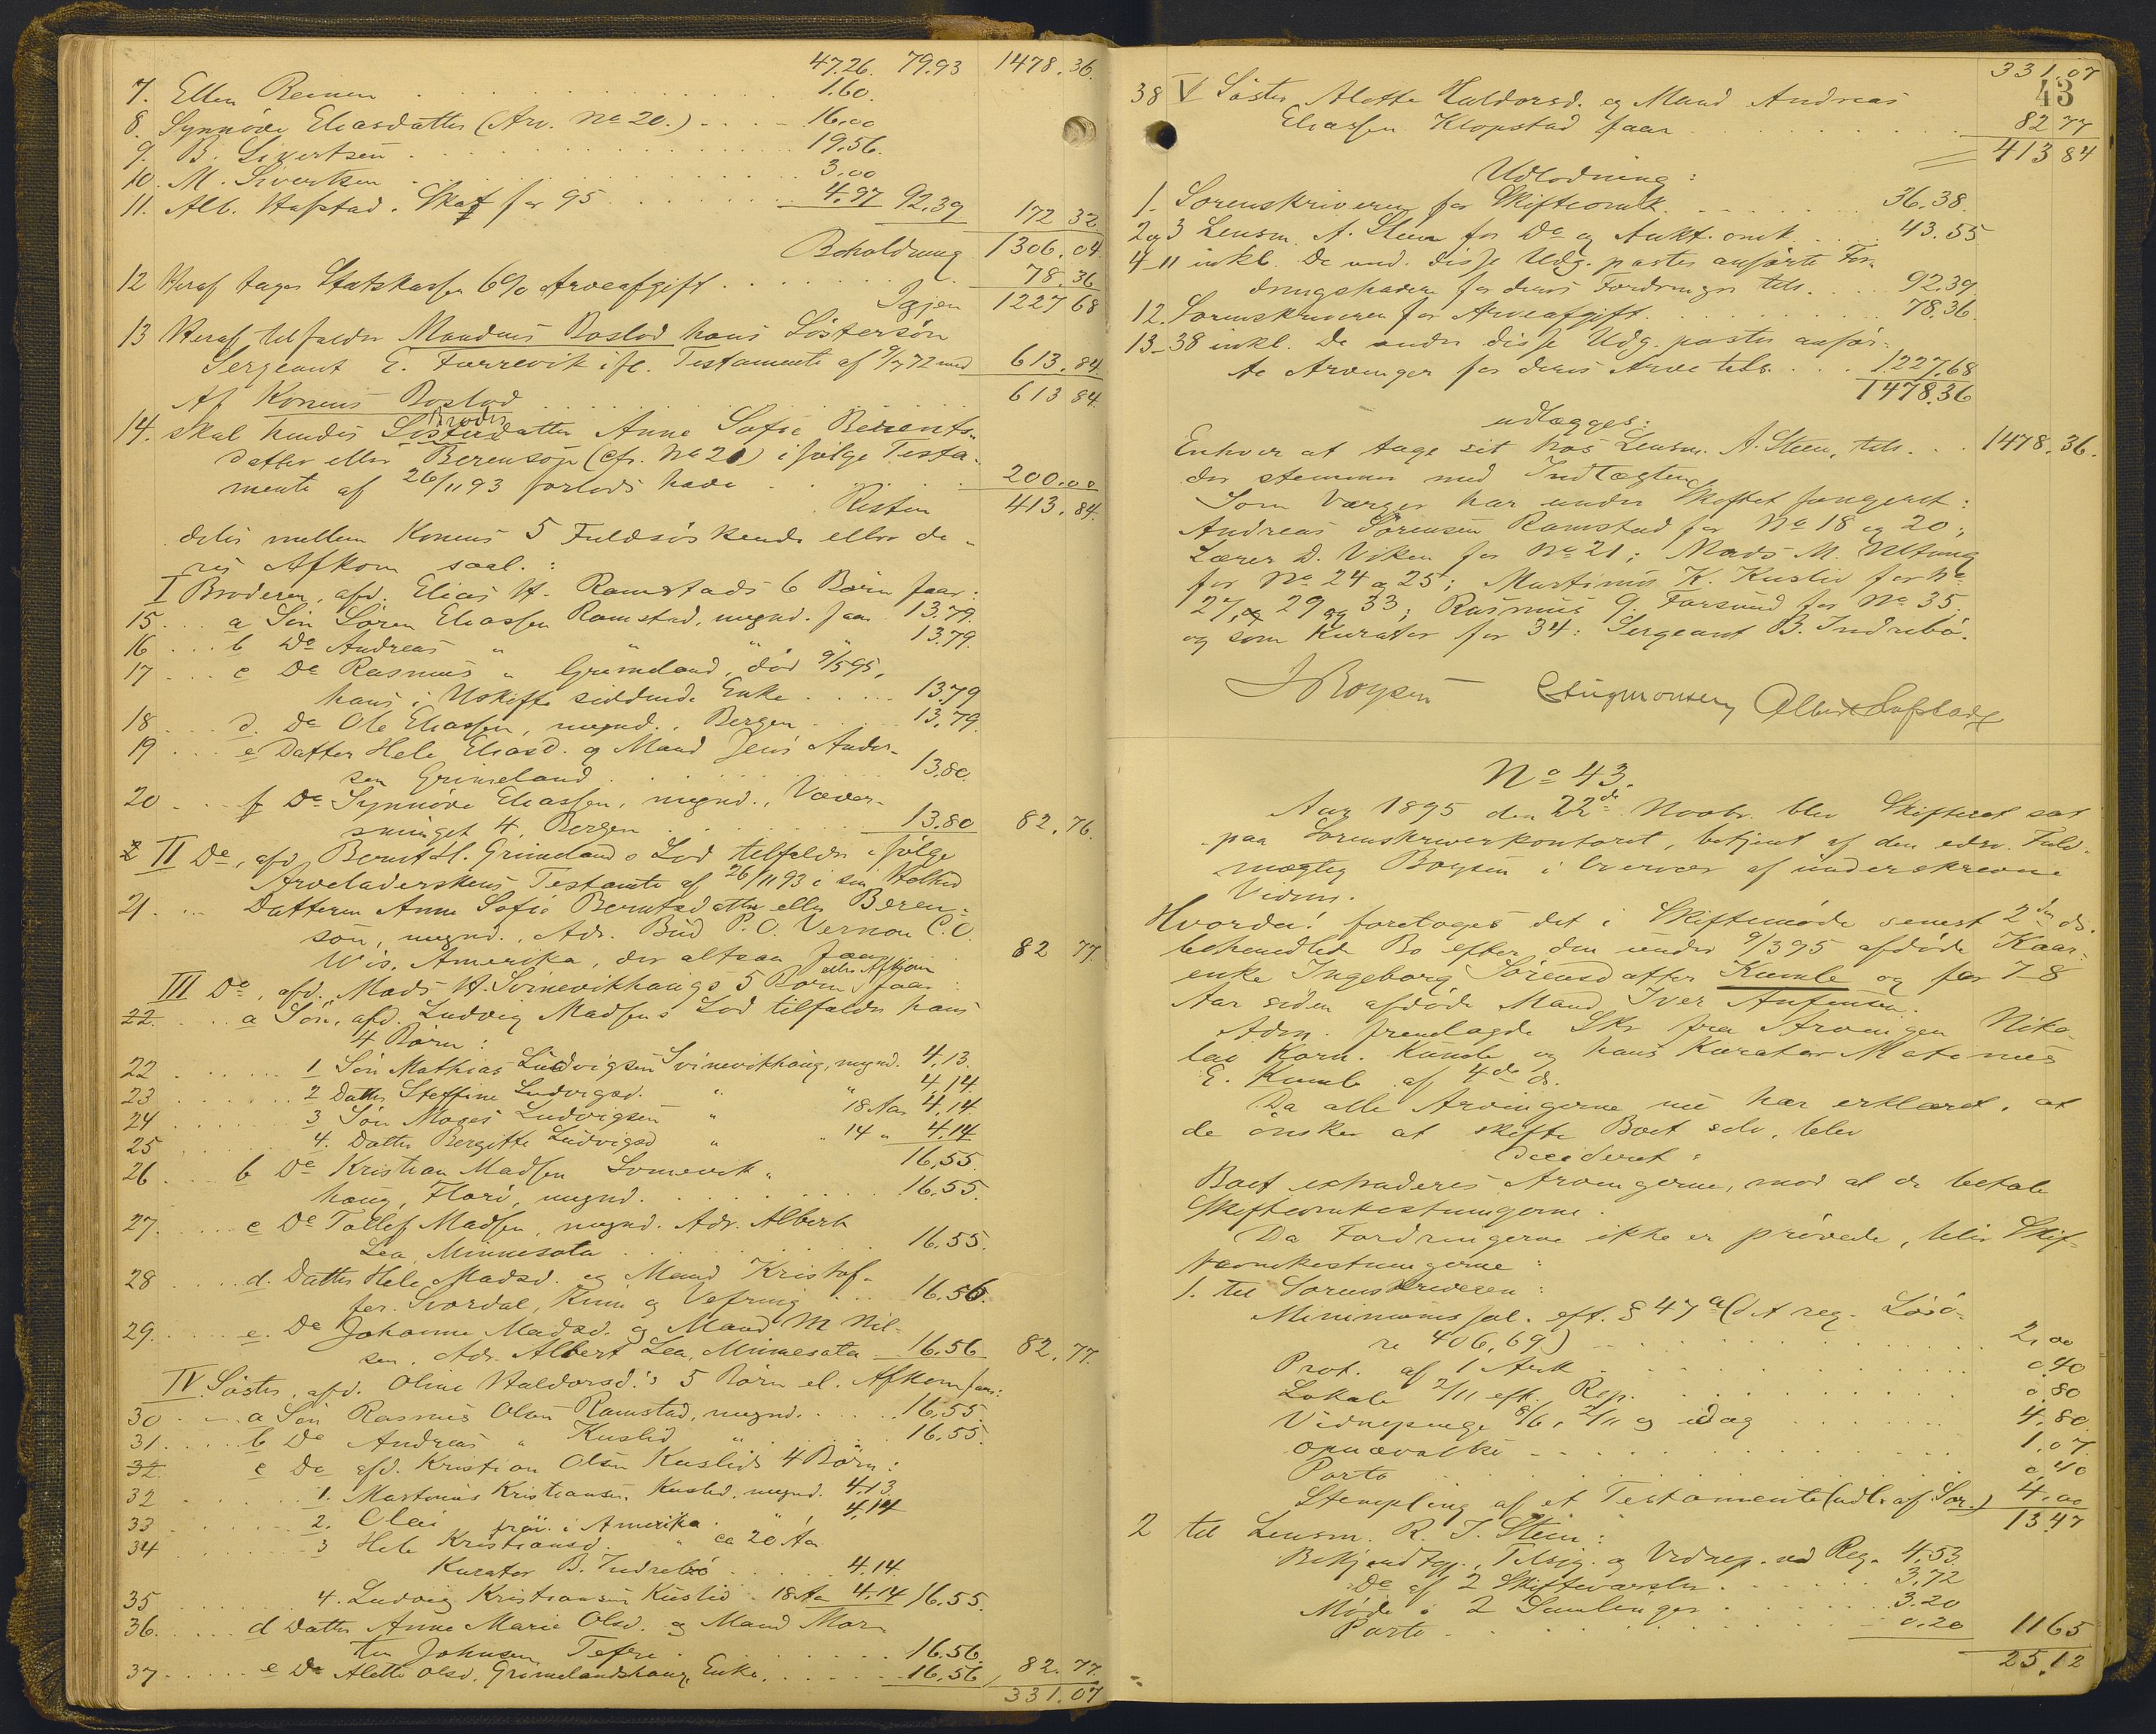 47.26. 79.93 1478.36.
7. Ellen Remen . . . 1.60.
8. Synnöve Eliasdatter (Arv. No 20.) . . . 16.00
9. B. Sivertsen . . . 19.56.
10. M. Sivertsen . . . 3.00
11. Alb. Hafstad. Skat for 95 . . . 4.97 92.39 172 32
Beholdning 1306.04.
12 Heraf tages Statskassen 6% Arveafgift . . . 78.36
Igjen 1227 68
13 Heraf tilfalder Mandens Boslod hans Söstersön
Sergeant E. Furrevik ifl. Testamente af 9/7 72 med 613.84.
Af Konens Boslod . . . 613 84.
14. skal hendes Broderdatter Anne Sofie Berents-
datter eller Berensön (cfr. No 21) ifölge Testa-
mente af 26/11 93 forlods have . . . 200.00
Resten 413.84.
deles mellem Konens 5 Fuldsöskende eller de-
res Afkom saal. :
I Broderen, afd. Elias H. Ramstads 6 Börn faar:
15 . . a Sön Sören Eliassen Ramstad, mynd. faar 13.79.
16 . . . b Do Andreas " " " 13.79.
17 . . . c Do Rasmus " Grimeland, död 9/5 95,
hans i Uskifte siddende Enke . . . 13.79
18 . . . d. Do Ole Eliassen, mynd., Bergen . . . 13.79.
19 . . . e Datter Hele Eliasd. og Mand Jens Ander-
sen Grimeland . . . 13.80.
20 . . f Do Synnöve Eliassen, mynd., Væver-
smuget 4, Bergen . . . 13.80 82.76.
II Do, afd. Bernt H. Grimelands Lod tilfalder ifölge
Arveladerskens Testamte af 26/11 93 i sin Helhed
21. ... Datteren Anne Sofie Berntsdatter eller Beren-
sön, mynd., Adr. Bud P.O. Vernon C.O.
Wis. Amerika, der altsaa faar . . 82 77.
III Do, afd. Mads H. Svinevikhaugs 5 Börn eller Afkom faar:
22. . . . a Sön, afd. Ludvig Madsens Lod tilfalder hans
4 Börn:
22 . . . 1 Sön Mathias Ludvigsen Svinevikhaug, mynd. 4.13.
23 . . . 2 Datter Steffine Ludvigsd. " " 4.14.
24 . . . 3 Sön Moses Ludvigsen " 18 Aar 4.14.
25 . . . 4. Datter Bergitte Ludvigsd " 14 " 4.14
16,55.
26 . . . b Do Kristian Madsen Svinevik-
haug, Florö, mynd. . . . 16.55.
27. . . . c Do Tollef Madsen, mynd. Adr. Albert
Lea, Minnesota . . . 16.55.
28 . . . d. Datter Hele Madsd. og Mand Kristof-
fer Svordal, Kinn og Vefring . . . 16.56.
29. . . . e. Do Johanne Madsd. og Mand M Nil-
sen. Adr. Albert Lea, Minnesota 16.56 82.77.
IV. Söster, afd. Oline Haldorsd.'s 5 Börn el. Afkom faar:
30 . . . a Sön Rasmus Olsen Ramstad, mynd. . . . 16.55.
31. . . . b Do Andreas " Kuslid " . . . 16.55.
32 c Do afd. Kristian Olsen Kuslids 4 Börn:
32 . . . 1. Martinus Kristiansen Kuslid, mynd. 4.13.
33 . . . 2. Olai frav. i Amerika . . . 4.14
34 . . . 3 Hele Kristiansd. " ca 20 Aar
Kurator B. Indrebö . . . 4.14.
35 . . . 4. Ludvig Kristiansen Kuslid . 18 Aar 4.14 16.55.
36. . . . d Datter Anne Marie Olsd. og Mand Mar-
tin Johnsen Tefre . . . 16.56.
37. . . . e Do Alette Olsd. Grimelandshaug, Enke. . . . 16.56 82.77.
331.07
331.07
43
38 V Söster Alette Haldorsd. og Mand Andreas
Eliassen Klopstad faar . . . 82 77
413 84
Udlodning:
1. Sorenskriveren for Skifteomk. . . . 36.38.
2 og 3 Lensm. A. Steen for Do og Aukt. omk. . . . 43.55
4-11 inkl. De und. disse Udg. poster anförte For-
dringshavere for deres Fordringer tils. . . . 92.39
12. Sorenskriveren for Arveafgift . . . 78.36.
13-38 inkl. De under disse Udg. poster anför-
te Arvinger for deres Arv tils. . . . 1227.68
1478.36
udlægges:
Enhver at tage sit hos Lensm. A. Steen, tils. . . 1478.36.
der stemmer med Indtægten.
Som Værger har under Skiftet fungeret:
Andreas Sörensen Ramstad for No 18 og 20;
Lærer D. Viken for No 21; Mads M.
for No 24 og 25; Martinus K. Kuslid for No
27, 29 og 33; Rasmus O. Forsund for No 35.
og som Kurator for 34: Sergeant B. Indrebö.
J Boysen Stugmonsen Albert Hafstad
No 43.
Aar 1895 den 22de Novbr. blev Skifteret sat
paa Sorenskriverkontoret, betjent af den edsv. Fuld-
mægtig Boysen i Overvær af underskrevne
Vidner.
Hvorda: foretoges det i Skiftemöde senest 2den ds.
behandlede Bo efter den under 9/3 95 afdöde Kaar-
enke Ingeborg Sörensdatter Kumle og for 7-8
Aar siden afdöde Mand Iver Anfinsen.
Adm. fremlagde Skr fra Arvingen Niko-
lai Korn. Kumle og hans Kurator Matinus
E. Kumle af 4de ds.
Da alle Arvingerne nu har erklæret, at
de önsker at skifte Boet selv, blev
Decideret:
Boet extraderes Arvingerne, mod at de betale
Skifteomkostningerne.
Da Fordringerne ikke er prövede, blir Skif-
teomkostningerne:
1. til Sorenskriveren:
Minimumssal. eft. § 47 a (d A reg. Lösö-
re 406,69) . . . 2,00
Prot. af 1 Ark . . . 0,40
Lokale 2/11 eft. Rep. . . . 0,80
Vidnepenge 8/6, 2/11 og idag . . . 4.80
Opnævelse . . . 1.07.
Porto . . . 0,40
Stempling af et Testamente (udl. af Sor.) 4.00
13.47
2 til Lensm. R. T. Steen:
Bekjendtgj., Tilsig. og Vidnep. ved Reg. 4.53.
Do af 2 Skiftevarsler . . . 3,72
Möde i 2 Samlinger . . . 3.20
Porto . . . 0.20 11 65
25.12